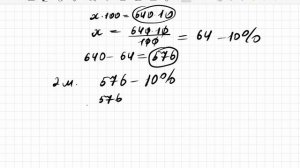 x · 100 = 640 · 10
x = 640 · 10 / 100 = 64 - 10%
640 - 64 = 576
2 м. 576 - 10%
576